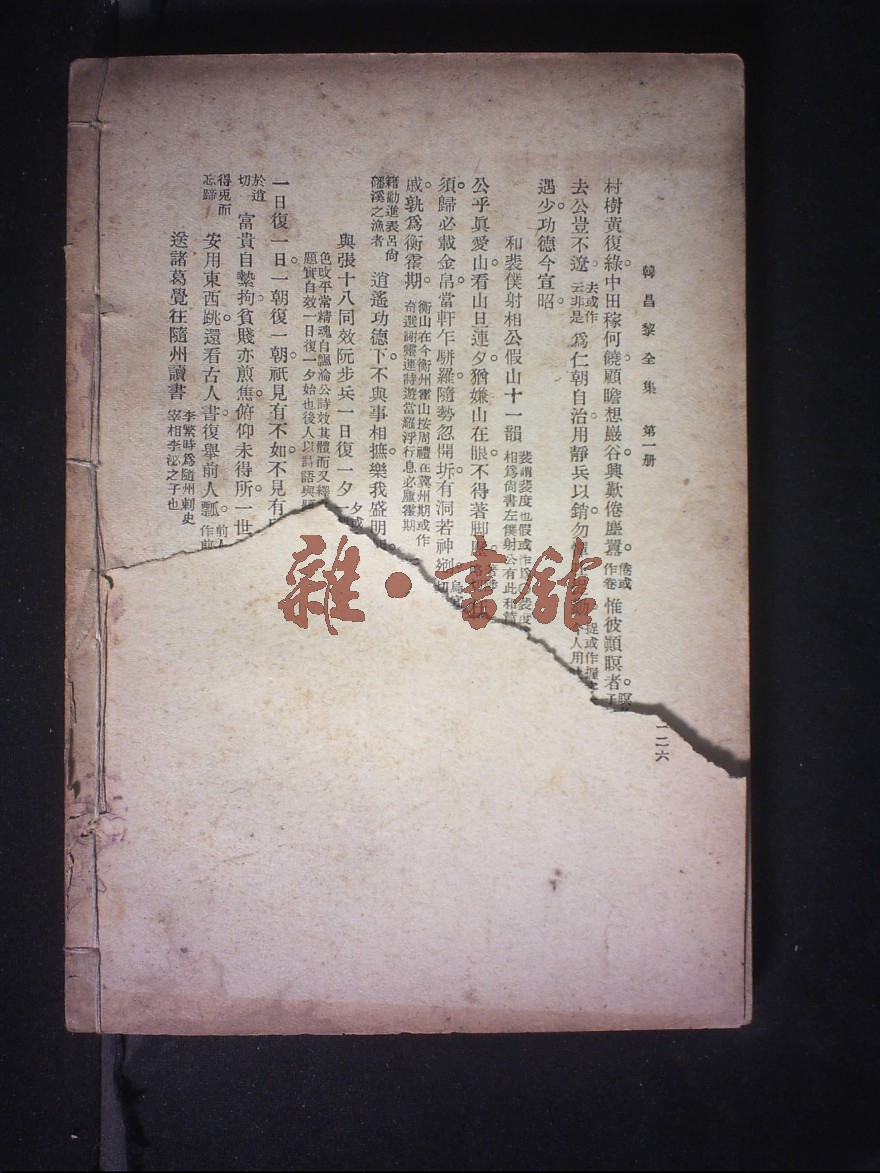 韓昌黎全集 第一册
一二六
村樹黃復綠。中田稼何饒。顧瞻想巖谷。興歎倦塵囂。倦或作卷 惟彼顚瞑者。
去公豈不遼。去或作云非是 爲仁朝自治。用靜兵以銷。勿
遇少功德今宣昭。
和裴僕射相公假山十一韻
公乎眞愛山。看山旦連夕。猶嫌山在眼。不得著脚
須歸必載金帛。當軒乍駢羅。隨勢忽開坼。有洞若神
戚。孰爲衡霍期。衡山在今衡州霍山按周禮在冀州期或作
奇選謝靈運詩遊當羅浮行息必廬霍期
籍勸進表呂尙磻溪之漁者 逍遙功德下。不與事相摭。樂我盛明
與張十八同效阮步兵一日復一夕
色改平常精魂自飄淪公詩效其體而又
題實自效一日復一夕始也後人以詩語與
一日復一日。一朝復一朝。祇見有不如。不見有
於道切 富貴自縶拘。貧賤亦煎焦。俯仰未得所。一世
得兎而忘蹄 安用東西跳。還看古人書。復舉前人瓢。
送諸葛覺往隨州讀書 李繁時爲隨州刺史宰相李泌之子也
雜·書館